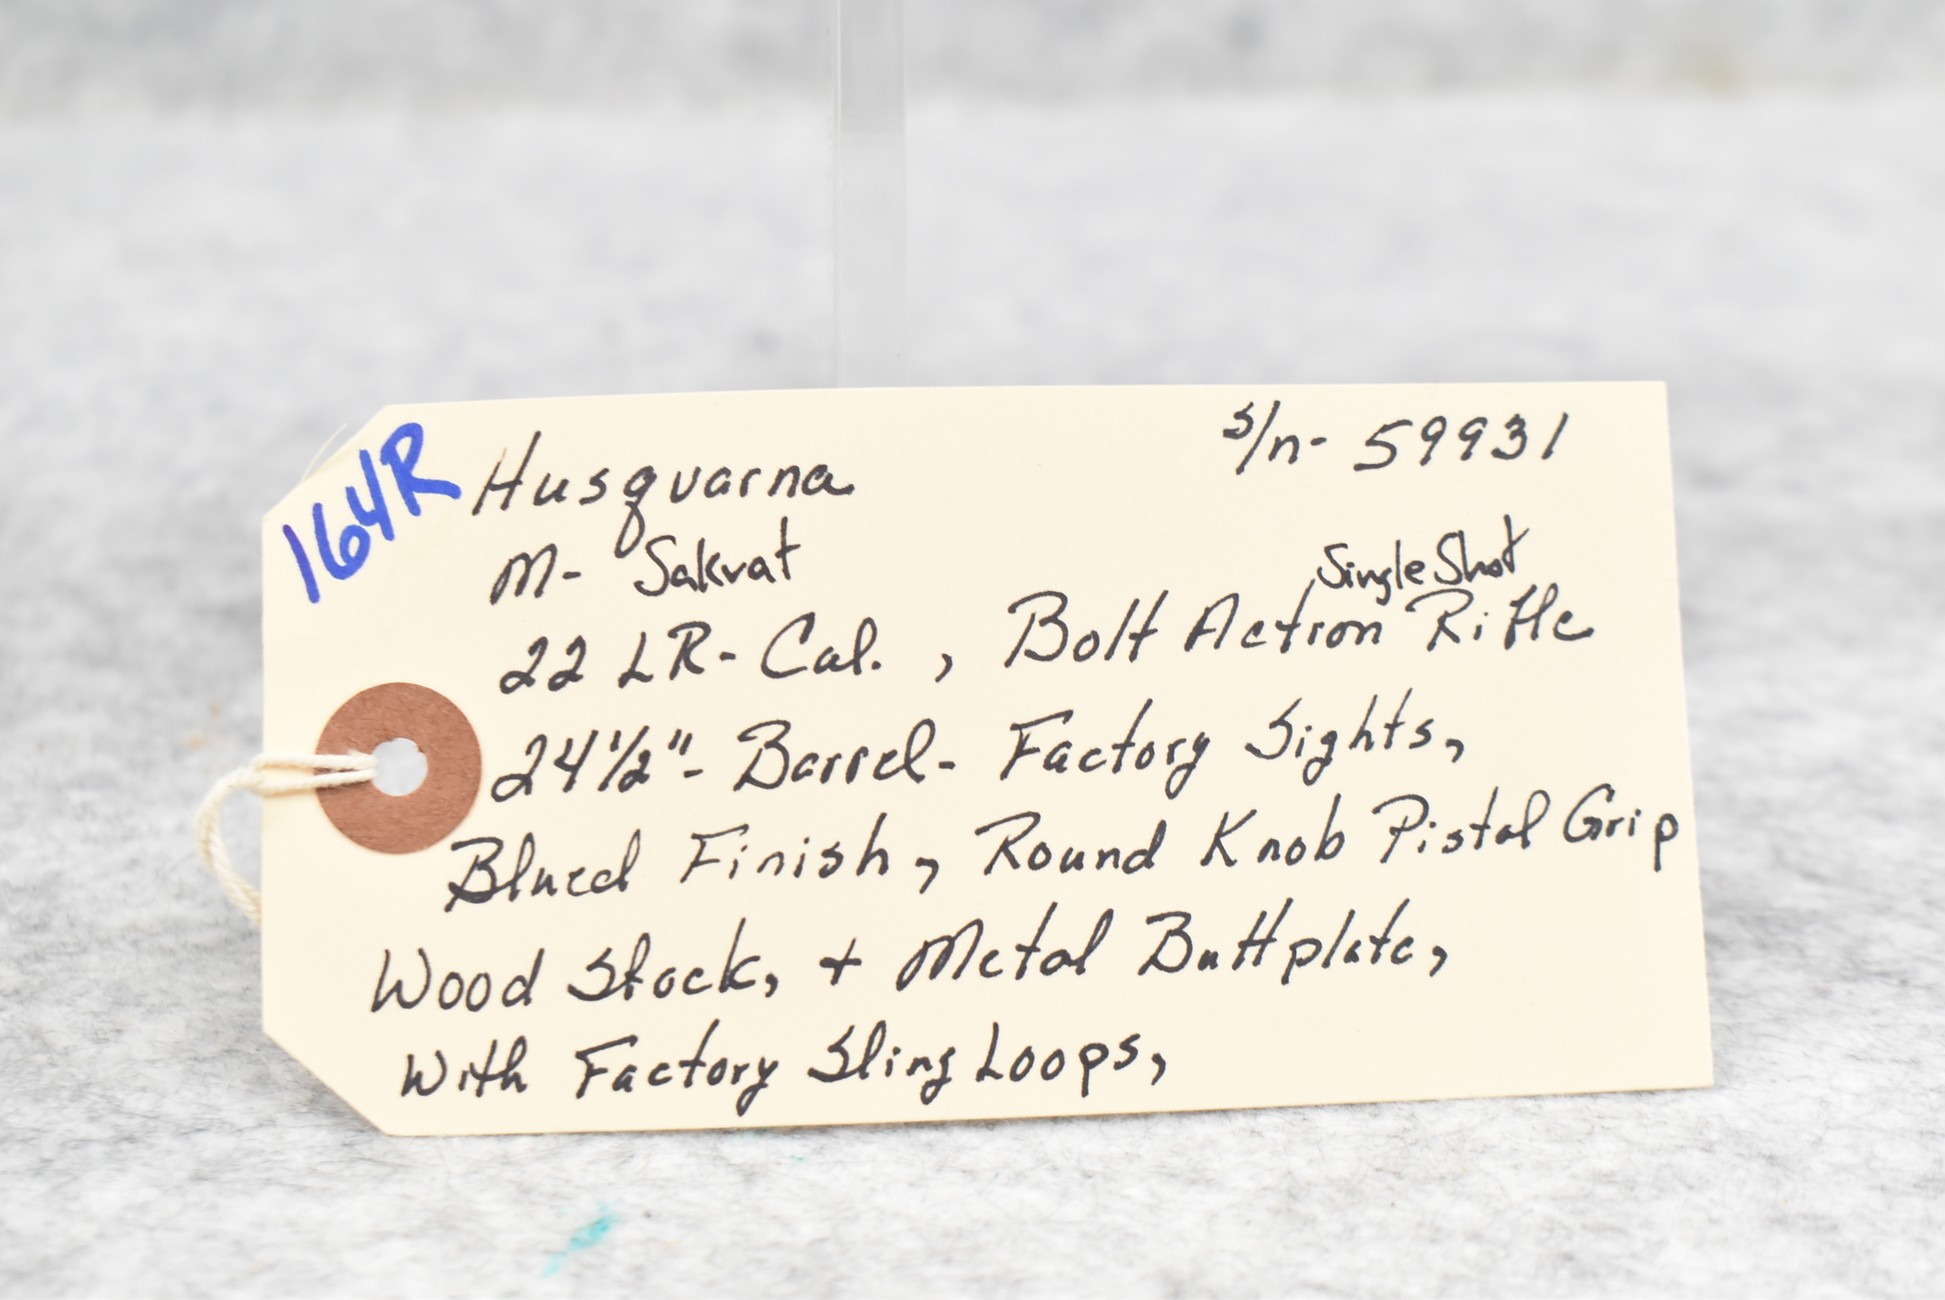 164R
Husqvarna
s/n- 59931
M- Sakvat
Single Shot
22 LR- Cal. , Bolt Action Rifle
24 1/2"- Barrel- Factory Sights,
Blued Finish, Round Knob Pistol Grip
Wood Stock, + Metal Buttplate,
With Factory Sling Loops,